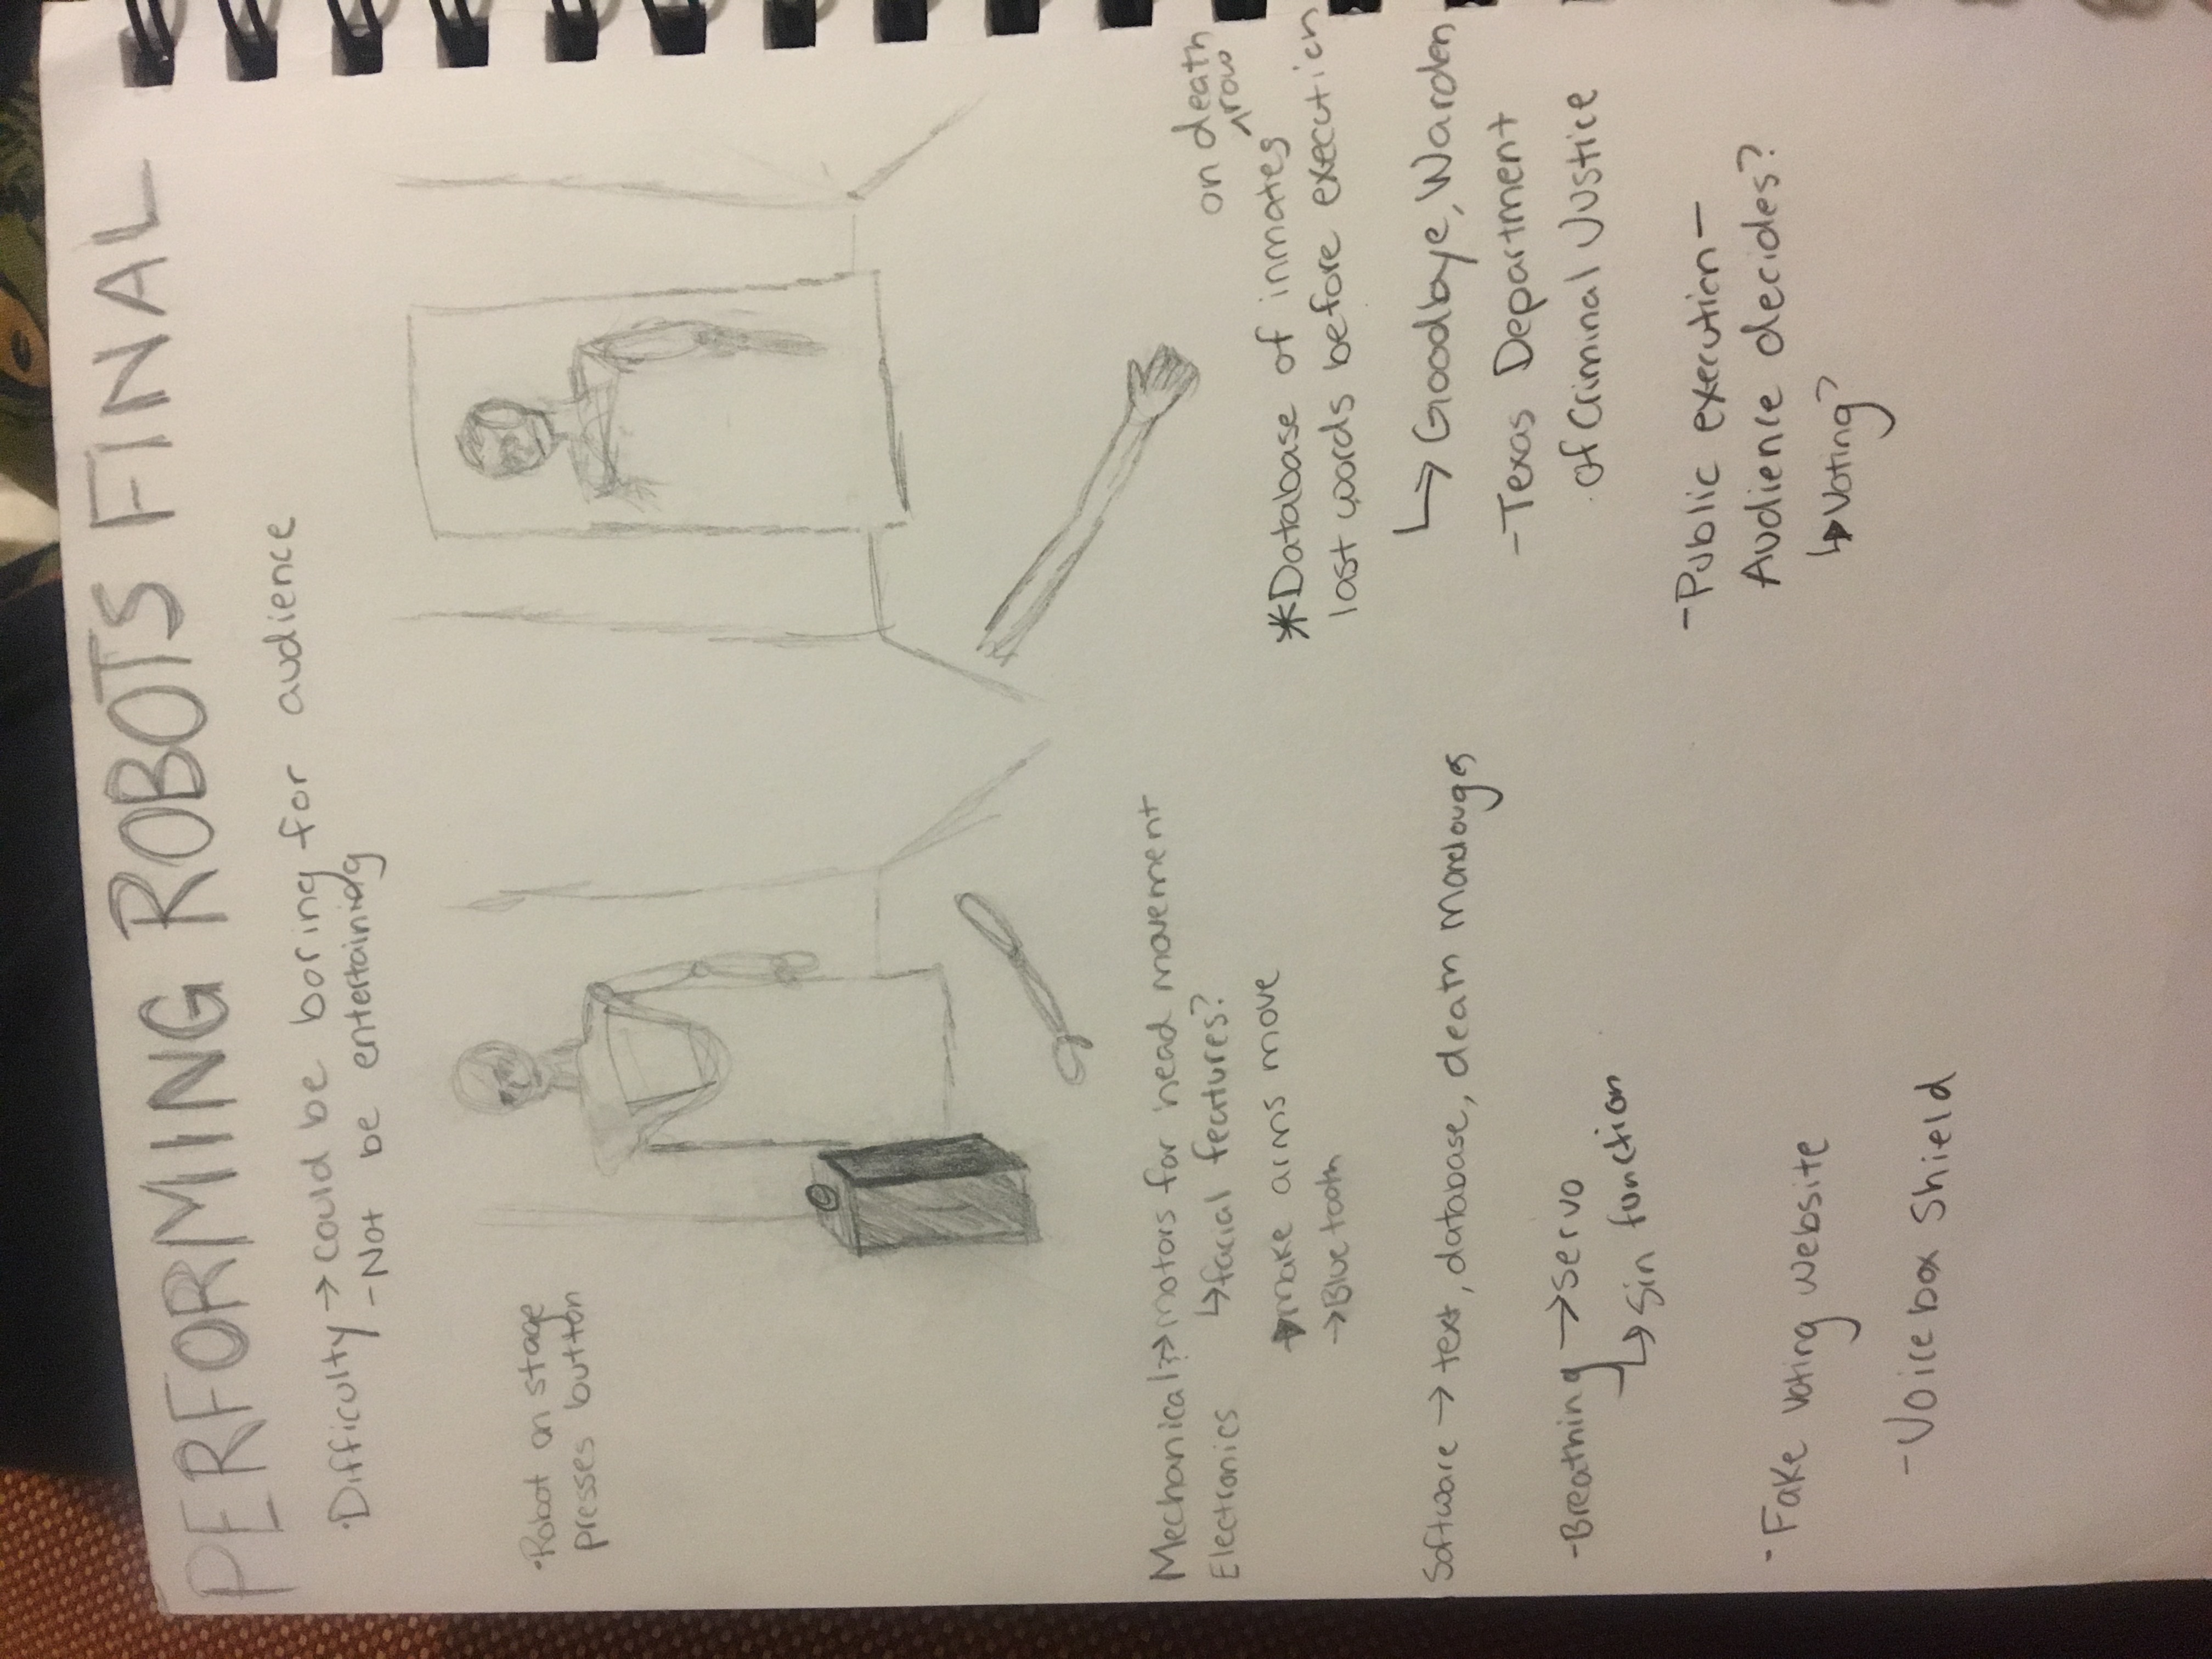 PERFORMING ROBOTS FINAL
·Difficulty → could be boring for audience
-Not be entertaining
·Robot on stage
presses button
Mechanical?→ motors for head movement
Electronics ↳facial features?
→make arms move
→Bluetooth
Software → text, database, death monologues
-Breathing → servo
↳ Sin function
· Fake voting website
- Voice box Shield
on death
^row
*Database of inmates
last words before execution
↳ Gooodbye, Warden
-Texas Department
of Criminal Justice
-Public execution-
Audience decides?
↳Voting?